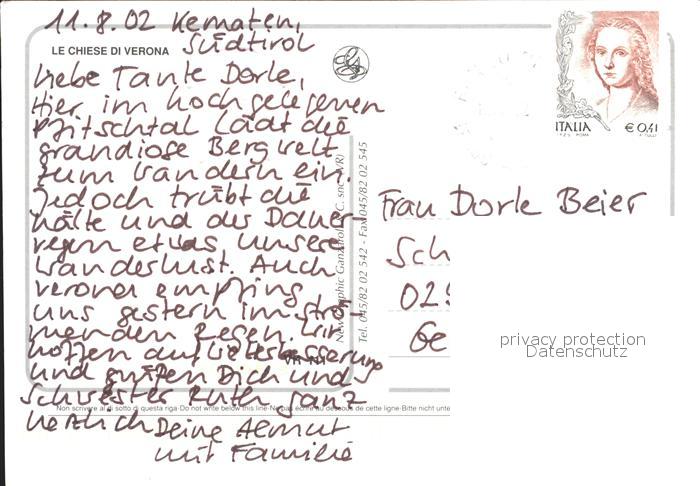 11.8.02 Kematen,
Südtirol
LE CHIESE DI VERONA
Liebe Tante Dorle,
Hier im hochgelegenen
Pfitschtal lädt die
grandiose Bergwelt
zum Wandern ein.
Jedoch trübt die
Kälte und der Dauer-
regen etwas unsere
Wanderlust. Auch
Verona empfing
uns gestern im strö-
menden Regen. Wir
hoffen auf Wetterbesserung
und grüßen Dich und
Schwester Ruth ganz
herzlich Deine Almut
mit Familie
Non scrivere al di sotto di questa riga-Do not write below this line-Ne pas écrire au dessous de cette ligne-Bitte nicht unt
Tel. 045/82 02 542 - Fax 045/82 02 545
ITALIA € 0,41
Frau Dorle Beier
Sch
029
Ge
privacy protection
Datenschutz